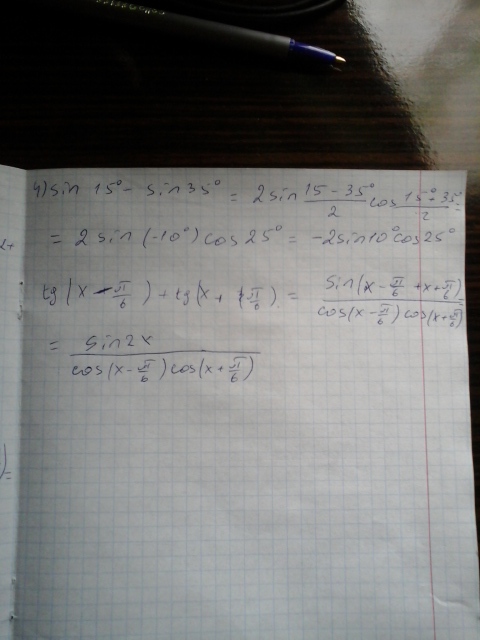 4) sin 15° - sin 35° = 2 sin (15 - 35°)/2 cos (15° + 35°)/2 =
= 2 sin (-10°) cos 25° = -2 sin 10° cos 25°
tg (x - π/6) + tg (x + π/6) = sin(x - π/6 + x + π/6) / cos(x - π/6) cos(x + π/6)
= sin 2x / cos(x - π/6) cos(x + π/6)